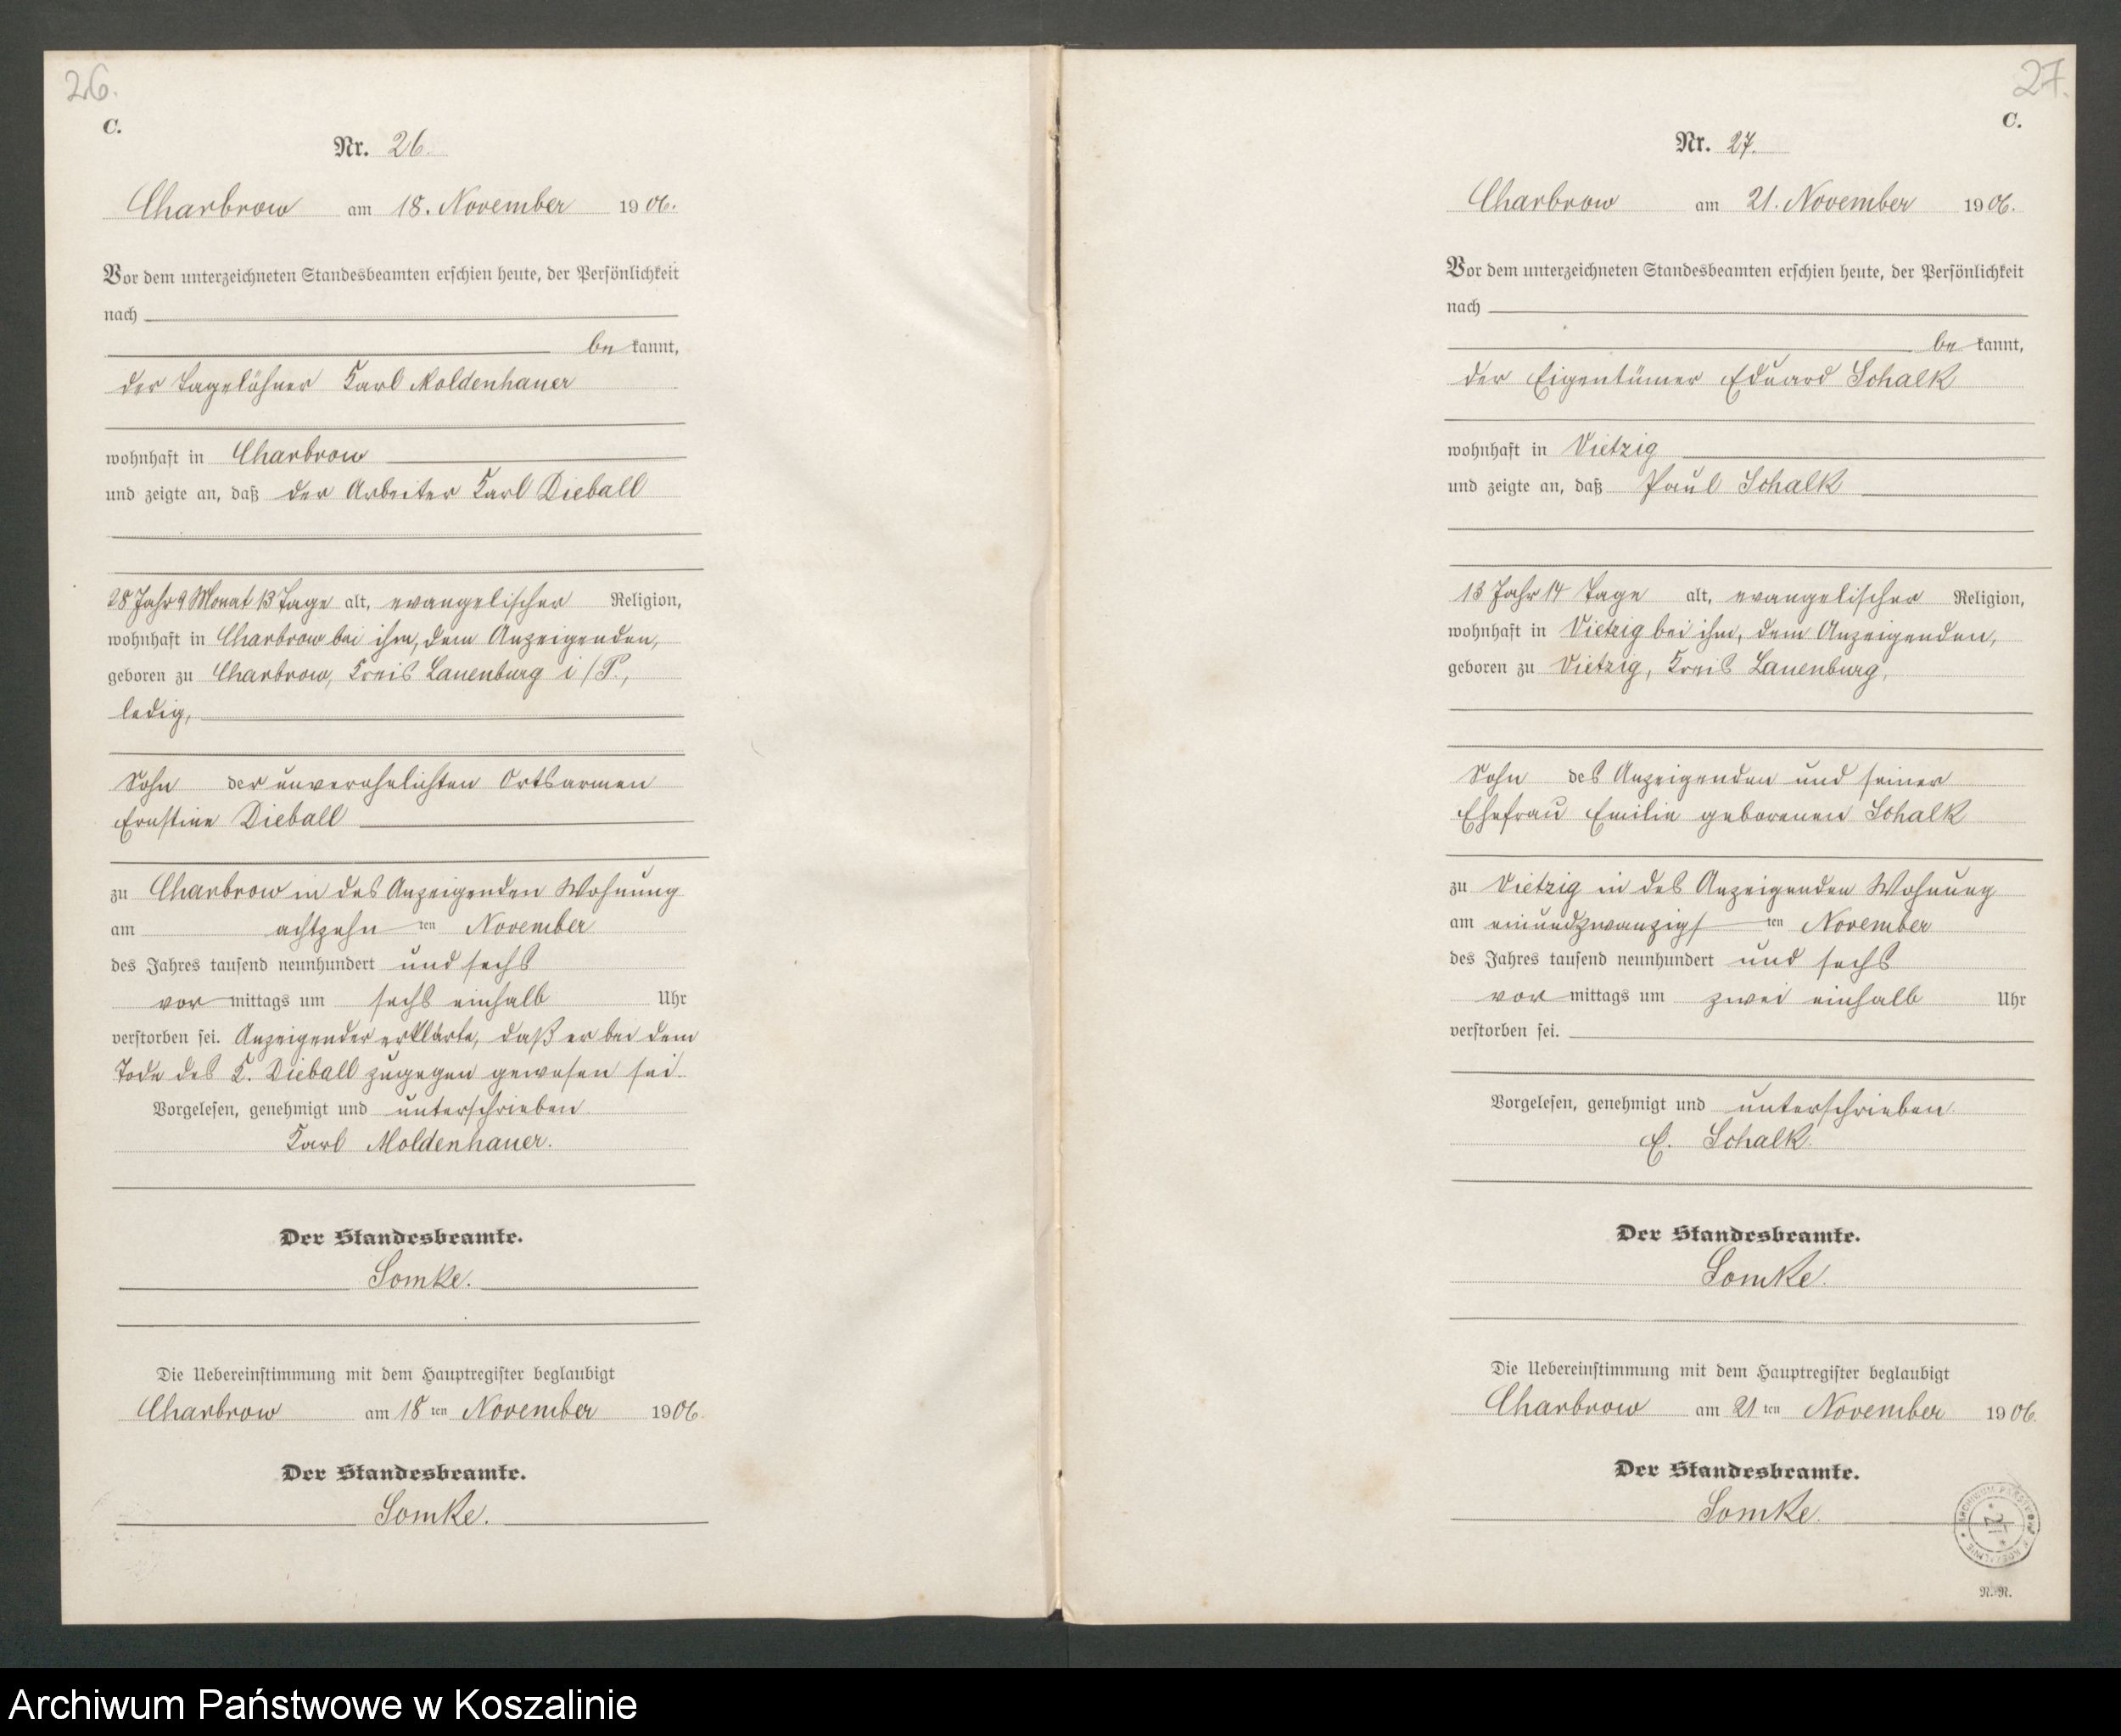 26.
C.
Nr. 26.
Charbrow am 18. November 1906.
Vor dem unterzeichneten Standesbeamten erschien heute, der Persönlichkeit
nach
be kannt,
der Tagelöhner Karl Moldenhauer
wohnhaft in Charbrow
und zeigte an, daß der Arbeiter Karl Dieball
28 Jahr 9 Monat 13 Tage alt, evangelischer Religion,
wohnhaft in Charbrow bei ihm, dem Anzeigenden,
geboren zu Charbrow, Kreis Lauenburg i/P.,
ledig,
Sohn der unverehelichten Ortsarmen
Ernstine Dieball
zu Charbrow in des Anzeigenden Wohnung
am achtzehn ten November
des Jahres tausend neunhundert und sechs
vor mittags um sechs einhalb Uhr
verstorben sei. Anzeigender erklärte, daß er bei dem
Tode des K. Dieball zugegen gewesen sei.
Vorgelesen, genehmigt und unterschrieben.
Karl Moldenhauer.
Der Standesbeamte.
Somke.
Die Uebereinstimmung mit dem Hauptregister beglaubigt
Charbrow am 18 ten November 1906.
Der Standesbeamte.
Somke.
27.
C.
Nr. 27.
Charbrow am 21. November 1906.
Vor dem unterzeichneten Standesbeamten erschien heute, der Persönlichkeit
nach
be kannt,
der Eigentümer Eduard Schalk
wohnhaft in Vietzig
und zeigte an, daß Paul Schalk
13 Jahr 14 Tage alt, evangelischer Religion,
wohnhaft in Vietzig bei ihm, dem Anzeigenden,
geboren zu Vietzig, Kreis Lauenburg,
Sohn des Anzeigenden und seiner
Ehefrau Emilie geborenen Schalk
zu Vietzig in des Anzeigenden Wohnung
am einundzwanzigs ten November
des Jahres tausend neunhundert und sechs
vor mittags um zwei einhalb Uhr
verstorben sei.
Vorgelesen, genehmigt und unterschrieben.
E. Schalk.
Der Standesbeamte.
Somke.
Die Uebereinstimmung mit dem Hauptregister beglaubigt
Charbrow am 21 ten November 1906.
Der Standesbeamte.
Somke.
ARCHIWUM PAŃSTWOWE W KOSZALINIE
N.-N.
Archiwum Państwowe w Koszalinie